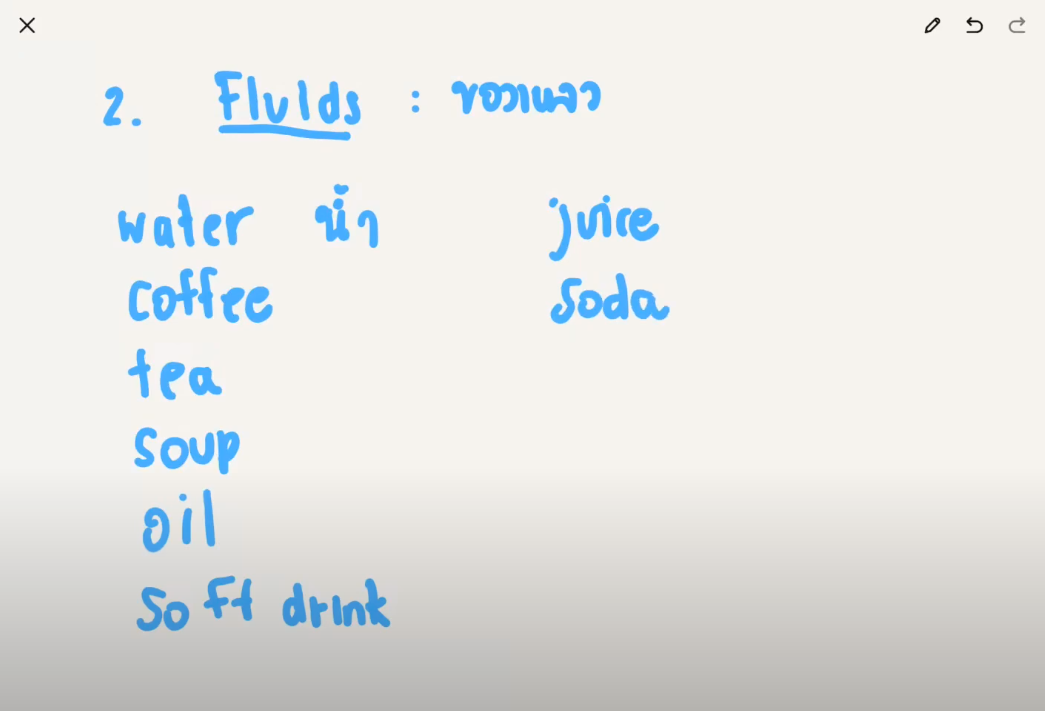 2. Fluids : ของเหลว
water น้ำ
coffee
tea
soup
oil
soft drink
juice
soda